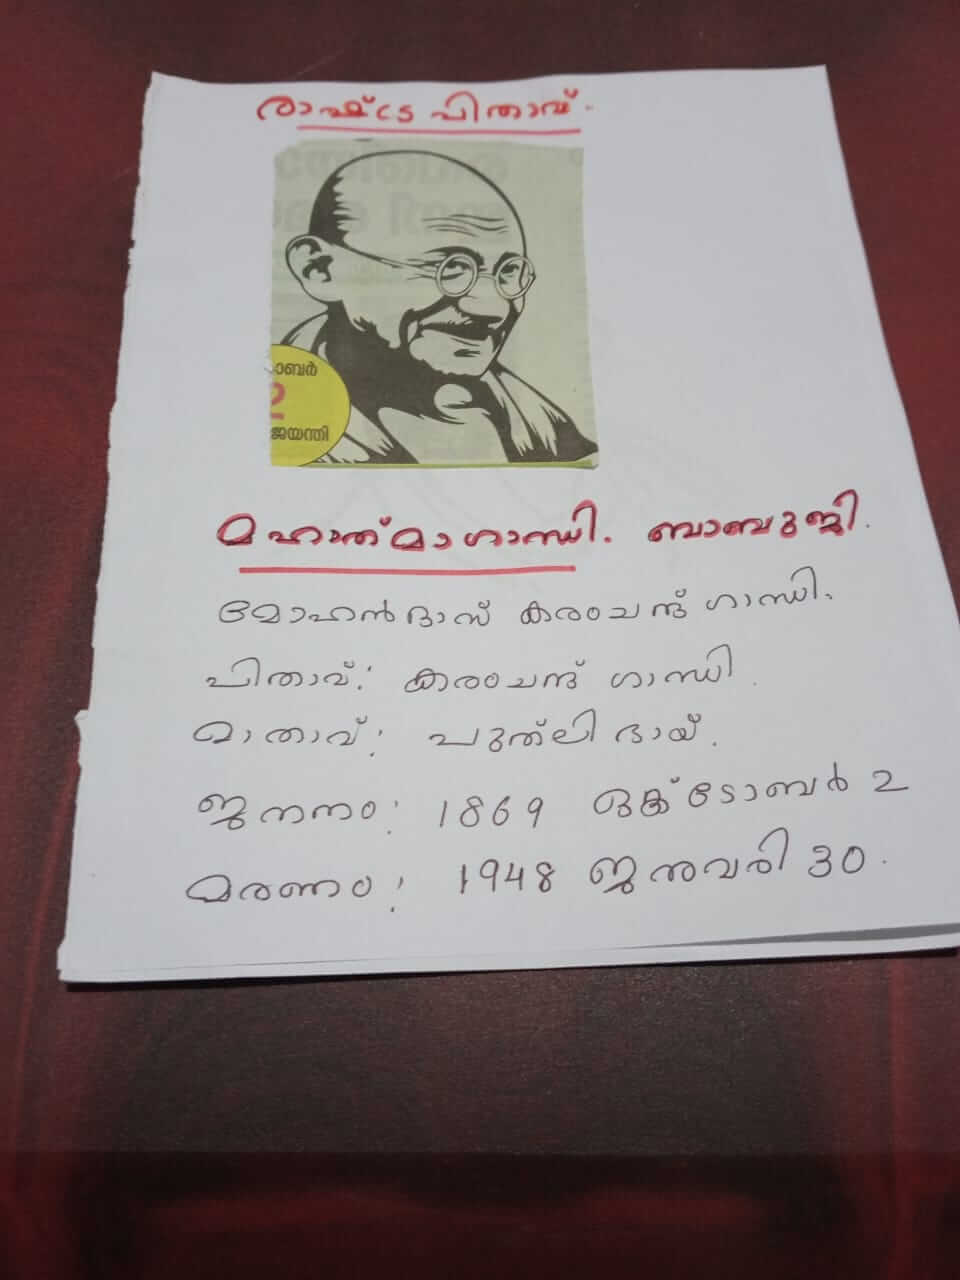 രാഷ്ട്ര പിതാവ്.
ാബർ
2
ജയന്തി
മഹാത്മാഗാന്ധി. ബാബുജി.
മോഹൻദാസ് കരംചന്ദ് ഗാന്ധി.
പിതാവ്: കരംചന്ദ് ഗാന്ധി.
മാതാവ്: പുത്ലി ഭായ്.
ജനനം: 1869 ഒക്ടോബർ 2
മരണം: 1948 ജനുവരി 30.